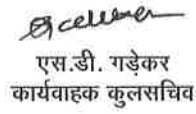 एस.डी. गड़ेकर
कार्यवाहक कुलसचिव